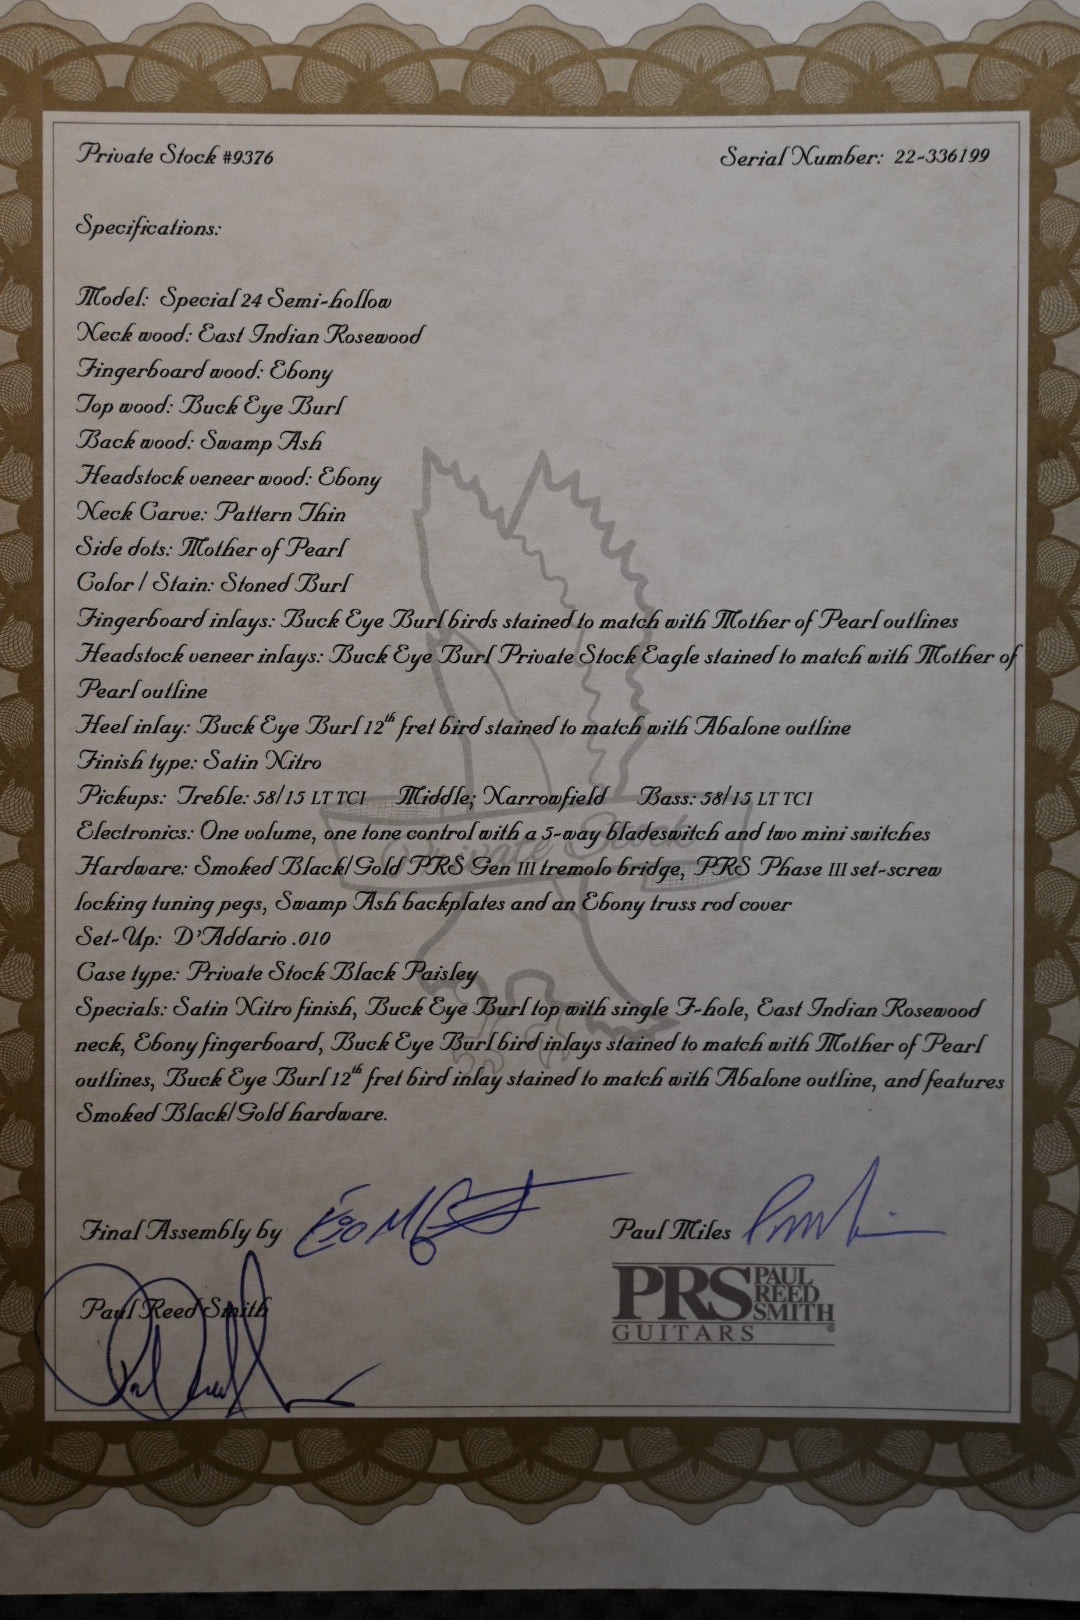 Private Stock #9376
Serial Number: 22-336199
Specifications:
Model: Special 24 Semi-hollow
Neck wood: East Indian Rosewood
Fingerboard wood: Ebony
Top wood: Buck Eye Burl
Back wood: Swamp Ash
Headstock veneer wood: Ebony
Neck Carve: Pattern Thin
Side dots: Mother of Pearl
Color / Stain: Stoned Burl
Fingerboard inlays: Buck Eye Burl birds stained to match with Mother of Pearl outlines
Headstock veneer inlays: Buck Eye Burl Private Stock Eagle stained to match with Mother of
Pearl outline
Heel inlay: Buck Eye Burl 12th fret bird stained to match with Abalone outline
Finish type: Satin Nitro
Pickups: Treble: 58/15 LT TCI Middle; Narrowfield Bass: 58/15 LT TCI
Electronics: One volume, one tone control with a 5-way bladeswitch and two mini switches
Hardware: Smoked Black/Gold PRS Gen III tremolo bridge, PRS Phase III set-screw
locking tuning pegs, Swamp Ash backplates and an Ebony truss rod cover
Set-Up: D'Addario .010
Case type: Private Stock Black Paisley
Specials: Satin Nitro finish, Buck Eye Burl top with single F-hole, East Indian Rosewood
neck, Ebony fingerboard, Buck Eye Burl bird inlays stained to match with Mother of Pearl
outlines, Buck Eye Burl 12th fret bird inlay stained to match with Abalone outline, and features
Smoked Black/Gold hardware.
Private Stock
Final Assembly by
Paul Miles
Paul Reed Smith
PRS PAUL REED SMITH
GUITARS